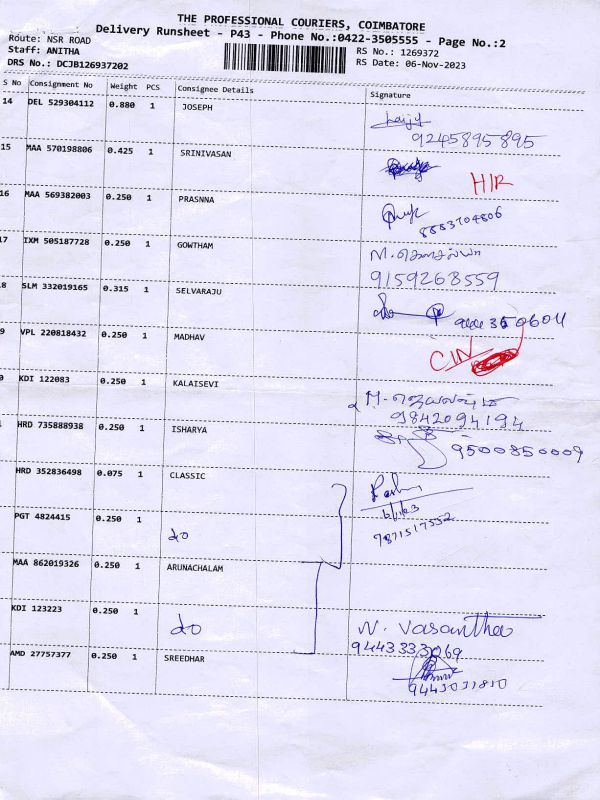 THE PROFESSIONAL COURIERS, COIMBATORE
Delivery Runsheet - P43 - Phone No.:0422-3505555 - Page No.:2
Route: NSR ROAD
Staff: ANITHA
DRS No.: DCJB126937202
RS No.: 1269372
RS Date: 06-Nov-2023
S No Consignment No Weight PCS Consignee Details Signature
14 DEL 529304112 0.880 1 JOSEPH
9245895895
15 MAA 570198806 0.425 1 SRINIVASAN
16 MAA 569382003 0.250 1 PRASNNA
8883704806
17 IXM 505187728 0.250 1 GOWTHAM
9159268559
8 SLM 332019165 0.315 1 SELVARAJU
9 VPL 220818432 0.250 1 MADHAV
0 KDI 122083 0.250 1 KALAISEVI
9842094194
1 HRD 735888938 0.250 1 ISHARYA
9500850009
HRD 352836498 0.075 1 CLASSIC
9871517552
PGT 4824415 0.250 1 do
MAA 862019326 0.250 1 ARUNACHALAM
KDI 123223 0.250 1 do
N. Vasantha
9443333069
AMD 27757377 0.250 1 SREEDHAR
9443031810